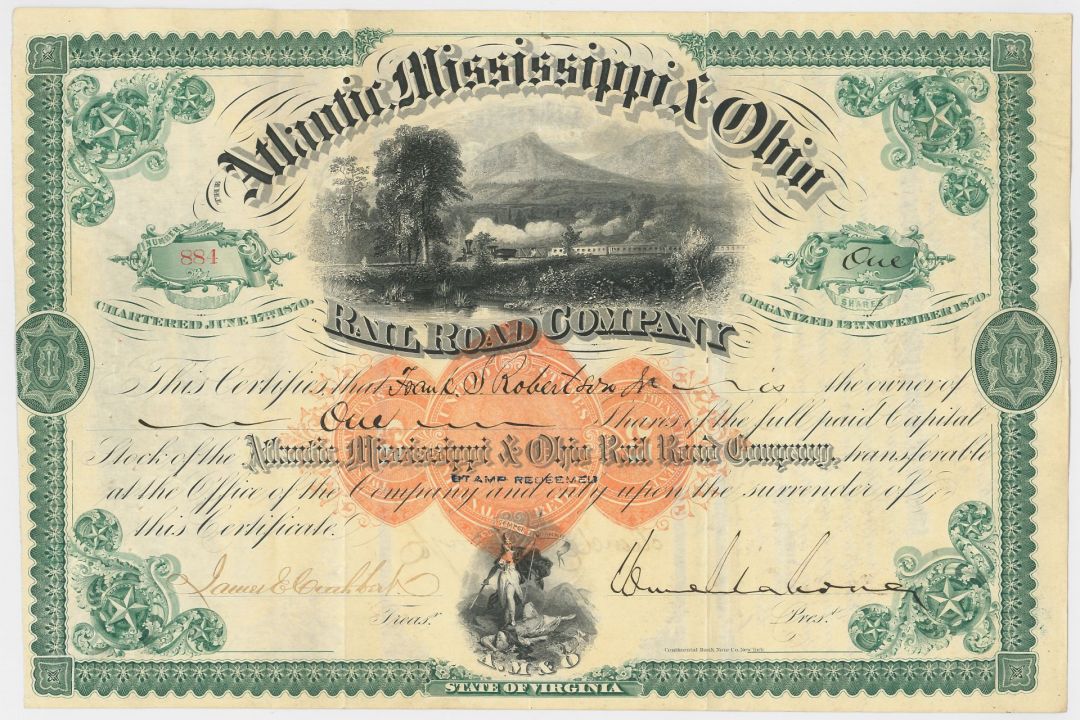 THE
Atlantic Mississippi & Ohio
NUMBER
884
One
SHARES
CHARTERED JUNE 17TH 1870.
ORGANIZED 12TH NOVEMBER 1870.
RAIL ROAD COMPANY
This Certifies, that Frank S Robertson Jr is the owner of
One Shares of the full paid Capital
Stock of the Atlantic Mississippi & Ohio Rail Road Company, transferable
at the Office of the Company and only upon the surrender of
this Certificate.
STAMP REDEEMED
James E Cuthbert
Treasr.
Wm Mahone
Prest.
Continental Bank Note Co. New York
A.M & O
STATE OF VIRGINIA